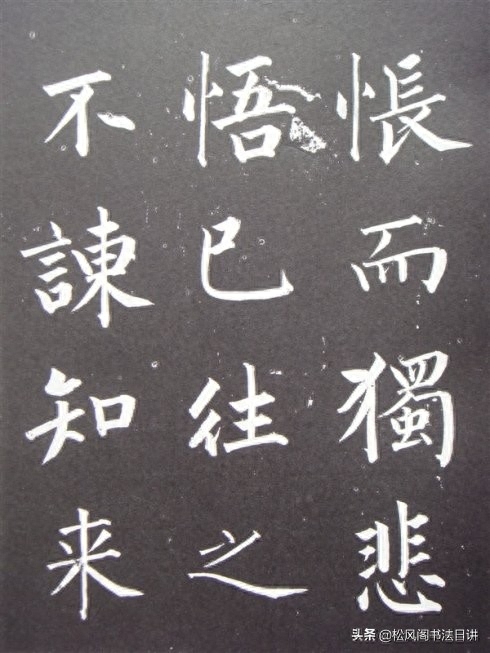 悵而獨悲
悟已往之
不諫知来
头条 @松风阁书法目讲